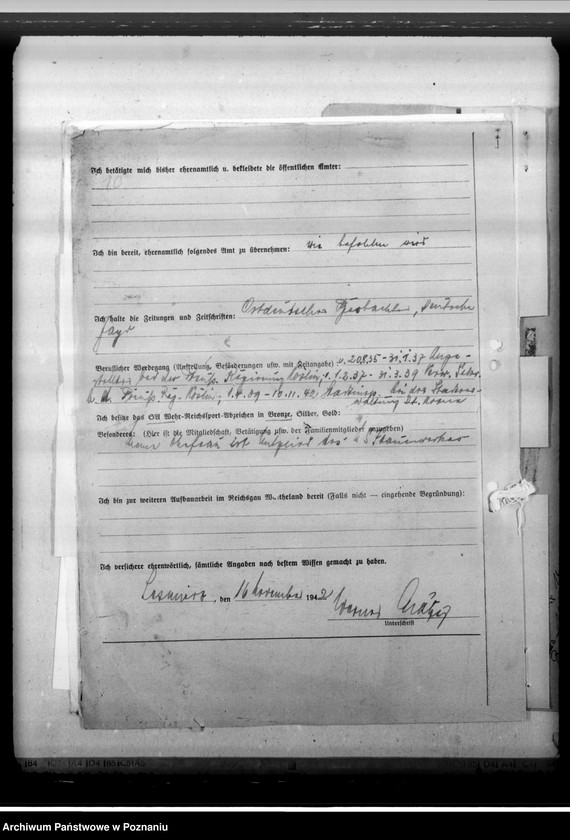 Ich betätigte mich bisher ehrenamtlich u. bekleidete die öffentlichen Ämter:
Ich bin bereit, ehrenamtlich folgendes Amt zu übernehmen: wie befohlen wird
Ich halte die Zeitungen und Zeitschriften: Ostdeutscher Beobachter, Deutsche
Jagd
Beruflicher Werdegang (Anstellung, Beförderungen usw. mit Zeitangabe) v. 20.8.35 - 31.1.37 Ange-
stellter bei der Regierung Köslin, 1.2.37 - 31.3.39
Köslin, 1.4.39 - 10.11.42 bei der
Ich besitze das SA Wehr-Reichssport-Abzeichen in Bronze, Silber, Gold:
Besonderes: (Hier ist die Mitgliedschaft, Betätigung usw. der Familienmitglieder anzugeben)
Meine Ehefrau ist Mitglied des
Ich bin zur weiteren Aufbauarbeit im Reichsgau Wartheland bereit (Falls nicht — eingehende Begründung):
Ich versichere ehrenwörtlich, sämtliche Angaben nach bestem Wissen gemacht zu haben.
, den 16 November 1942 Werner
Unterschrift
Archiwum Państwowe w Poznaniu